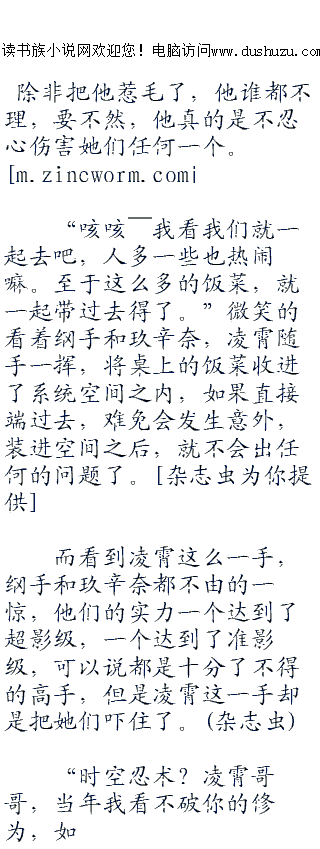 读书族小说网欢迎您！电脑访问www.dushuzu.com
除非把他惹毛了，他谁都不
理，要不然，他真的是不忍
心伤害她们任何一个。
[m.zincworm.com]
“咳咳——我看我们就一
起去吧，人多一些也热闹
嘛。至于这么多的饭菜，就
一起带过去得了。”微笑的
看着纲手和玖辛奈，凌霄随
手一挥，将桌上的饭菜收进
了系统空间之内，如果直接
端过去，难免会发生意外，
装进空间之后，就不会出任
何的问题了。[杂志虫为你提
供]
而看到凌霄这么一手，
纲手和玖辛奈都不由的一
惊，他们的实力一个达到了
超影级，一个达到了准影
级，可以说都是十分了不得
的高手，但是凌霄这一手却
是把她们吓住了。(杂志虫)
“时空忍术？凌霄哥
哥，当年我看不破你的修
为，如